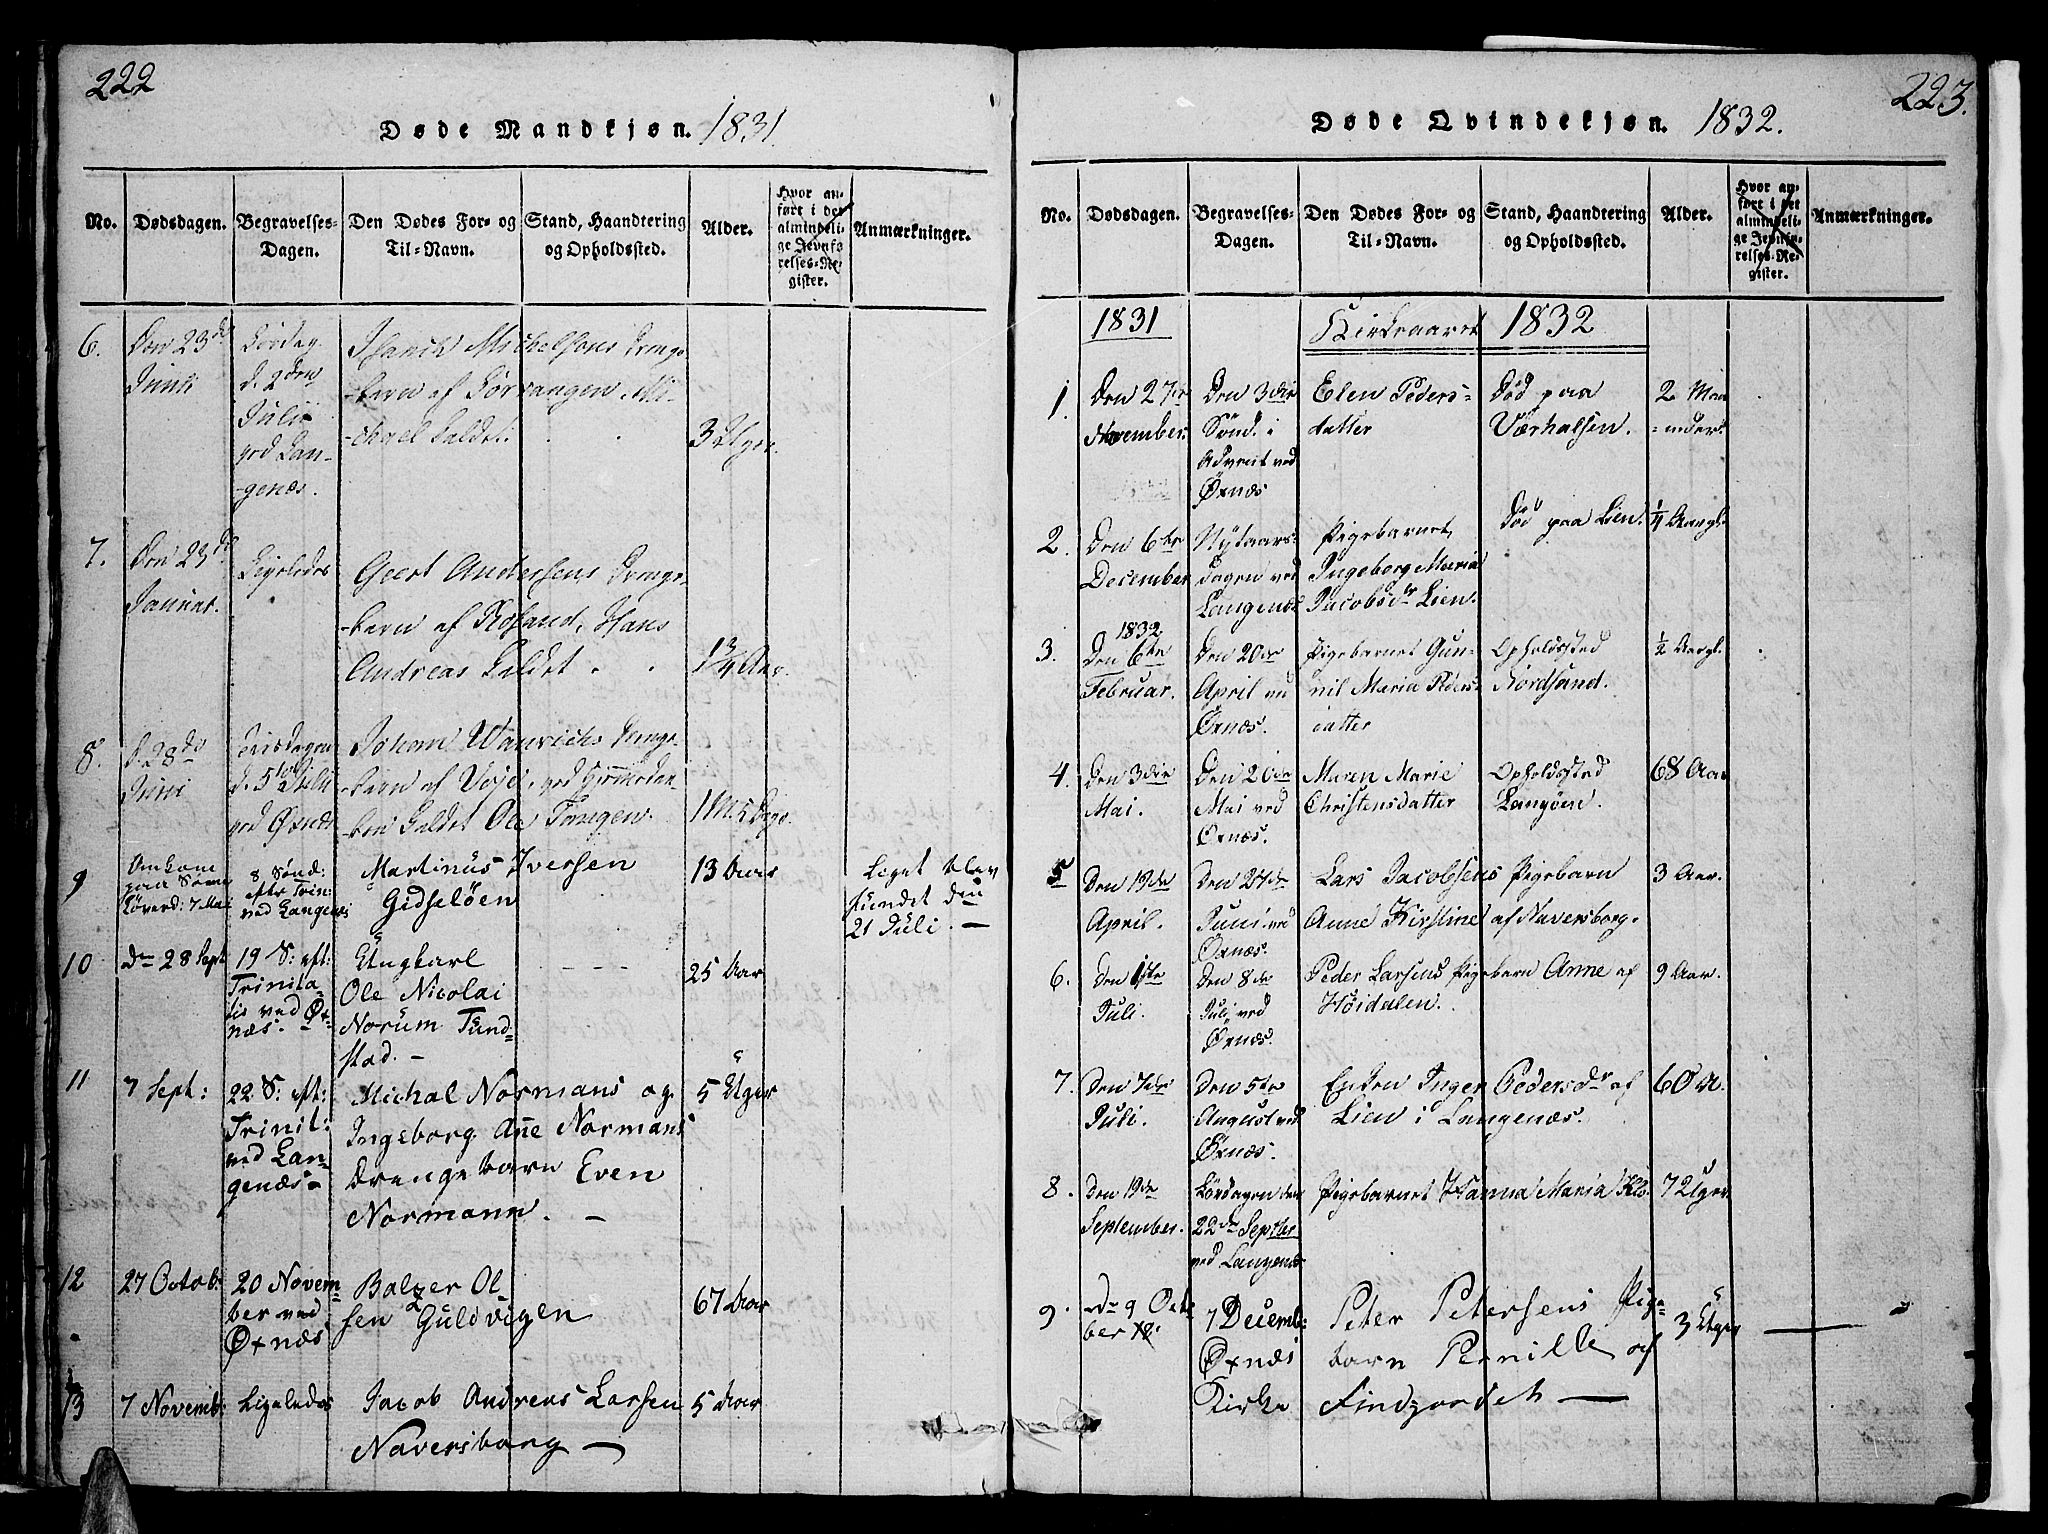 222
Døde Mandkjøn. 1831.
No. Dødsdagen. Begravelses-Dagen. Den Dødes For- og Til-Navn. Stand, Haandtering og Opholdssted. Alder. Hvor anført i det almindelige Jevnførelses-Register. Anmærkninger.
6. Den 23de Junii
Lørdag
d. 2den
Julii
ved Lan-
-genæs.
Michelsens Drenge-
-barn af Sørvangen, Mi-
-chael kaldet.
3 Uger.
7. Den 23de
Januar.
Ligeledes
Geert Andersens Drenge-
-barn af Rosand, Hans
Andreas kaldet
1 3/4 Aar.
8. d. 28de
Juni
Tirsdagen
d. 5te Julii
ved Øxnæs
Johan Drenge-
-barn af
kaldet Ole Tangen.
1 M.
9
Omkom
paa Søen
Løverd: 7 Mai
8 Sønd:
efter Trin:
ved Langenæs
Martinus Iversen
Gidsløen
13 Aar
Liget blev
fundet den
21 Juli. —
10
Den 28 Sept
19 S: eft:
Trinita-
tis ved Øx-
næs.
Ungkarl
Ole Nicolai
Norum Tund-
stad. —
25 Aar
11
7 Sept:
22 S: eft:
Trinit:
ved Lan-
genæs
Michal Normans og
Ingeborg Anne Normans
Drengebarn Even
Normann. —
5 Uger
12
27 Octob:
20 Novem-
ber ved
Øxnæs
Balzer Ol-
sen Guldvigen
67 Aar
13
7 Novemb:
Ligeledes
Jacob Andreas Larsen
Naversborg —
5 Aar
223.
Døde Qvindekjøn. 1832.
No. Dødsdagen. Begravelses-Dagen. Den Dødes For- og Til-Navn. Stand, Haandtering og Opholdssted. Alder. Hvor anført i det almindelige Jevnførelses-Register. Anmærkninger.
1831 Kirkeaaret 1832
1.
Den 27de
November.
Den 3die
Sønd. i
Advent ved
Øxnæs
Elen Peders-
datter
Død paa
Værhalsen.
2 Maa-
-neder.
2.
Den 6te
December
Nytaars-
dagen ved
Langenæs
Pigebarnet
Ingeborg Maria
Jacobsdr Lien.
Død paa Lien.
1/4 Aargl.
3.
1832
Den 6te
Februar.
Den 20de
April ved
Øxnæs.
Pigebarnet Gun-
nil Maria Peders-
datter
Opholdssted
Nordsand.
1/2 Aargl.
4.
Den 3die
Mai.
Den 20de
Mai ved
Øxnæs.
Maren Marie
Christensdatter
Opholdssted
Langøen.
68 Aar
5
Den 19de
April.
Den 27de
Juni ved
Øxnæs.
Lars Jacobsens Pigebarn
Anne Kirstine af Naversborg.
3 Aar.
6.
Den 1ste
Juli.
Den 8de
Juli ved
Øxnæs.
Peder Larsens Pigebarn Anne af
Høidalen.
9 Aar.
7.
Den 7de
Juli.
Den 5te
August ved
Øxnæs.
Enken Inger Pedersdr af
Lien i Langenæs.
60 A.
8.
Den 19de
September.
Lørdagen den
22de Septbr
ved Langenæs
Pigebarnet Hanna Maria Klo.
7 Uger.
9.
Den 9 Octo-
ber
7 Decemb:
Øxnæs
Kirke
Peter Petersens Pige-
barn Pernille af
Findgordet —
3 Uger